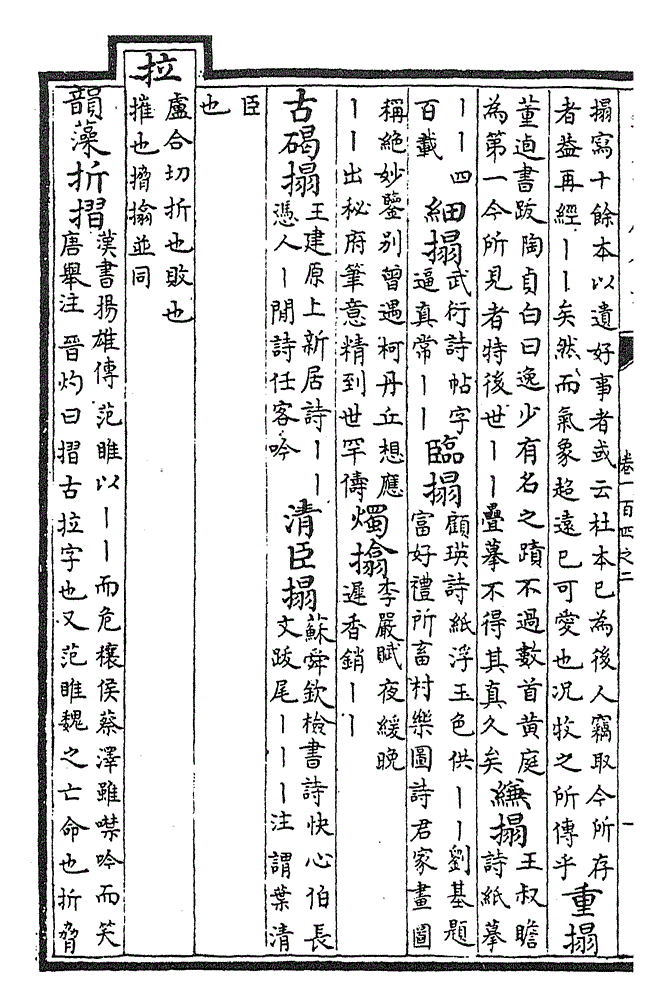 搨寫十餘本以遺好事者或云杜本已為後人竊取今所存
者葢再經丨丨矣然而氣象超遠已可愛也况牧之所傳乎
重搨
董逌書跋陶貞白曰逸少有名之蹟不過數首黄庭
為第一今所見者特後世丨丨疊摹不得其真久矣
縑搨
王叔瞻
詩紙摹
丨丨四
百載
細搨
武衍詩帖字
逼真常丨丨
臨搨
顧瑛詩紙浮玉色供丨丨劉基題
富好禮所畜村樂圖詩君家畫圖
稱絶妙鑒别曾遇柯丹丘想應
丨丨出秘府筆意精到世罕儔
燭搚
李嚴賦夜緩晚
遲香銷丨丨
古碣搨
王建原上新居詩丨丨
憑人丨閒詩任客吟
清臣搨
蘇舜欽檢書詩快心伯長
文跋尾丨丨丨注謂葉清
臣
也
拉
盧合切折也敗也
摧也摺搚並同
韻藻
折摺
漢書揚雄傳范睢以丨丨而危穰侯蔡澤雖噤吟而笑
唐舉注晉灼曰摺古拉字也又范睢魏之亡命也折脅
卷一百四之二